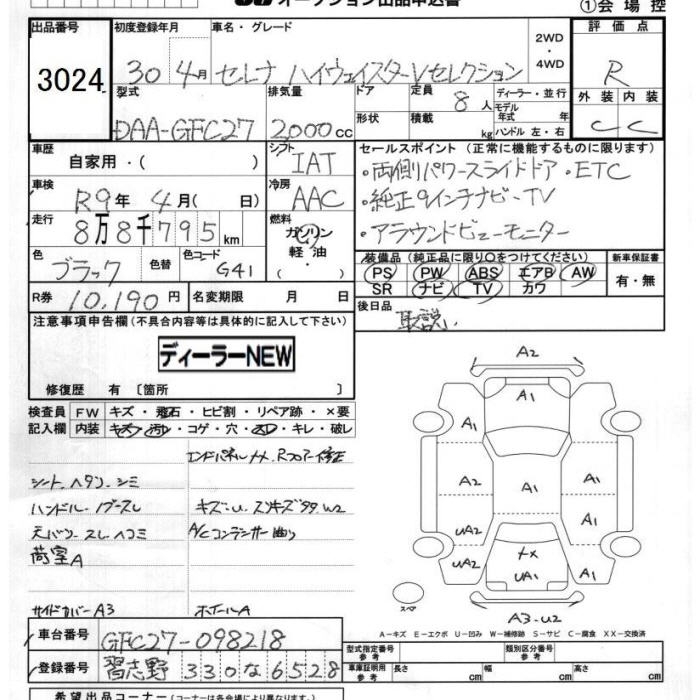 オークション出品申込書
①会場控
出品番号
3024
初度登録年月
30 4月
車名・グレード
セレナ ハイウェイスターVセレクション
2WD
・
4WD
評価点
R
外装 内装
C C
型式
DAA-GFC27
排気量
2000cc
ドア
形状
定員
8人
積載 kg
ディーラー・並行
モデル
年式 年
ハンドル 左・右
車歴
自家用・( )
シフト
IAT
車検
R9年 4月( 日)
冷房
AAC
走行
8万8千795km
燃料
ガソリン
軽油
色
ブラック
色替
色コード
G41
R券
10,190円
名変期限 月 日
セールスポイント(正常に機能するものに限ります)
・両側パワースライドドア・ETC
・純正9インチナビ・TV
・アラウンドビューモニター
装備品(純正品に限り○をつけてください)
PS PW ABS エアB AW
SR ナビ TV カワ
新車保証書
有・無
後日品
取説
注意事項申告欄(不具合内容等は具体的に記入して下さい)
ディーラーNEW
修復歴 有 〔箇所 〕
検査員
記入欄
FW キズ・飛石・ヒビ割・リペア跡・×要
内装 キズ・汚れ・コゲ・穴・スレ・キレ・破レ
エンドパネルメメ、Rフロアー修正
シート、ヘタリ、シミ
ハンドル
キズ・U
U2
天バリ スレ、ヘコミ
A/Cコンデンサー曲り
荷室A
サイドカバーA3
ホイールA
A2
A1
A1
A2
A1
A1
A1
UA2
UA2
メX
UA1
A1
A3・U2
スペア
A−キズ E−エクボ U−凹み W−補修跡 S−サビ C−腐食 XX−交換済
車台番号
GFC27-098218
登録番号
習志野 330 な 6528
型式指定番号
参考
類別区分番号
参考
車庫証明用
参考
長さ cm
幅 cm
高さ cm
希望出品コーナー(コーナー名は各会場により異なります)